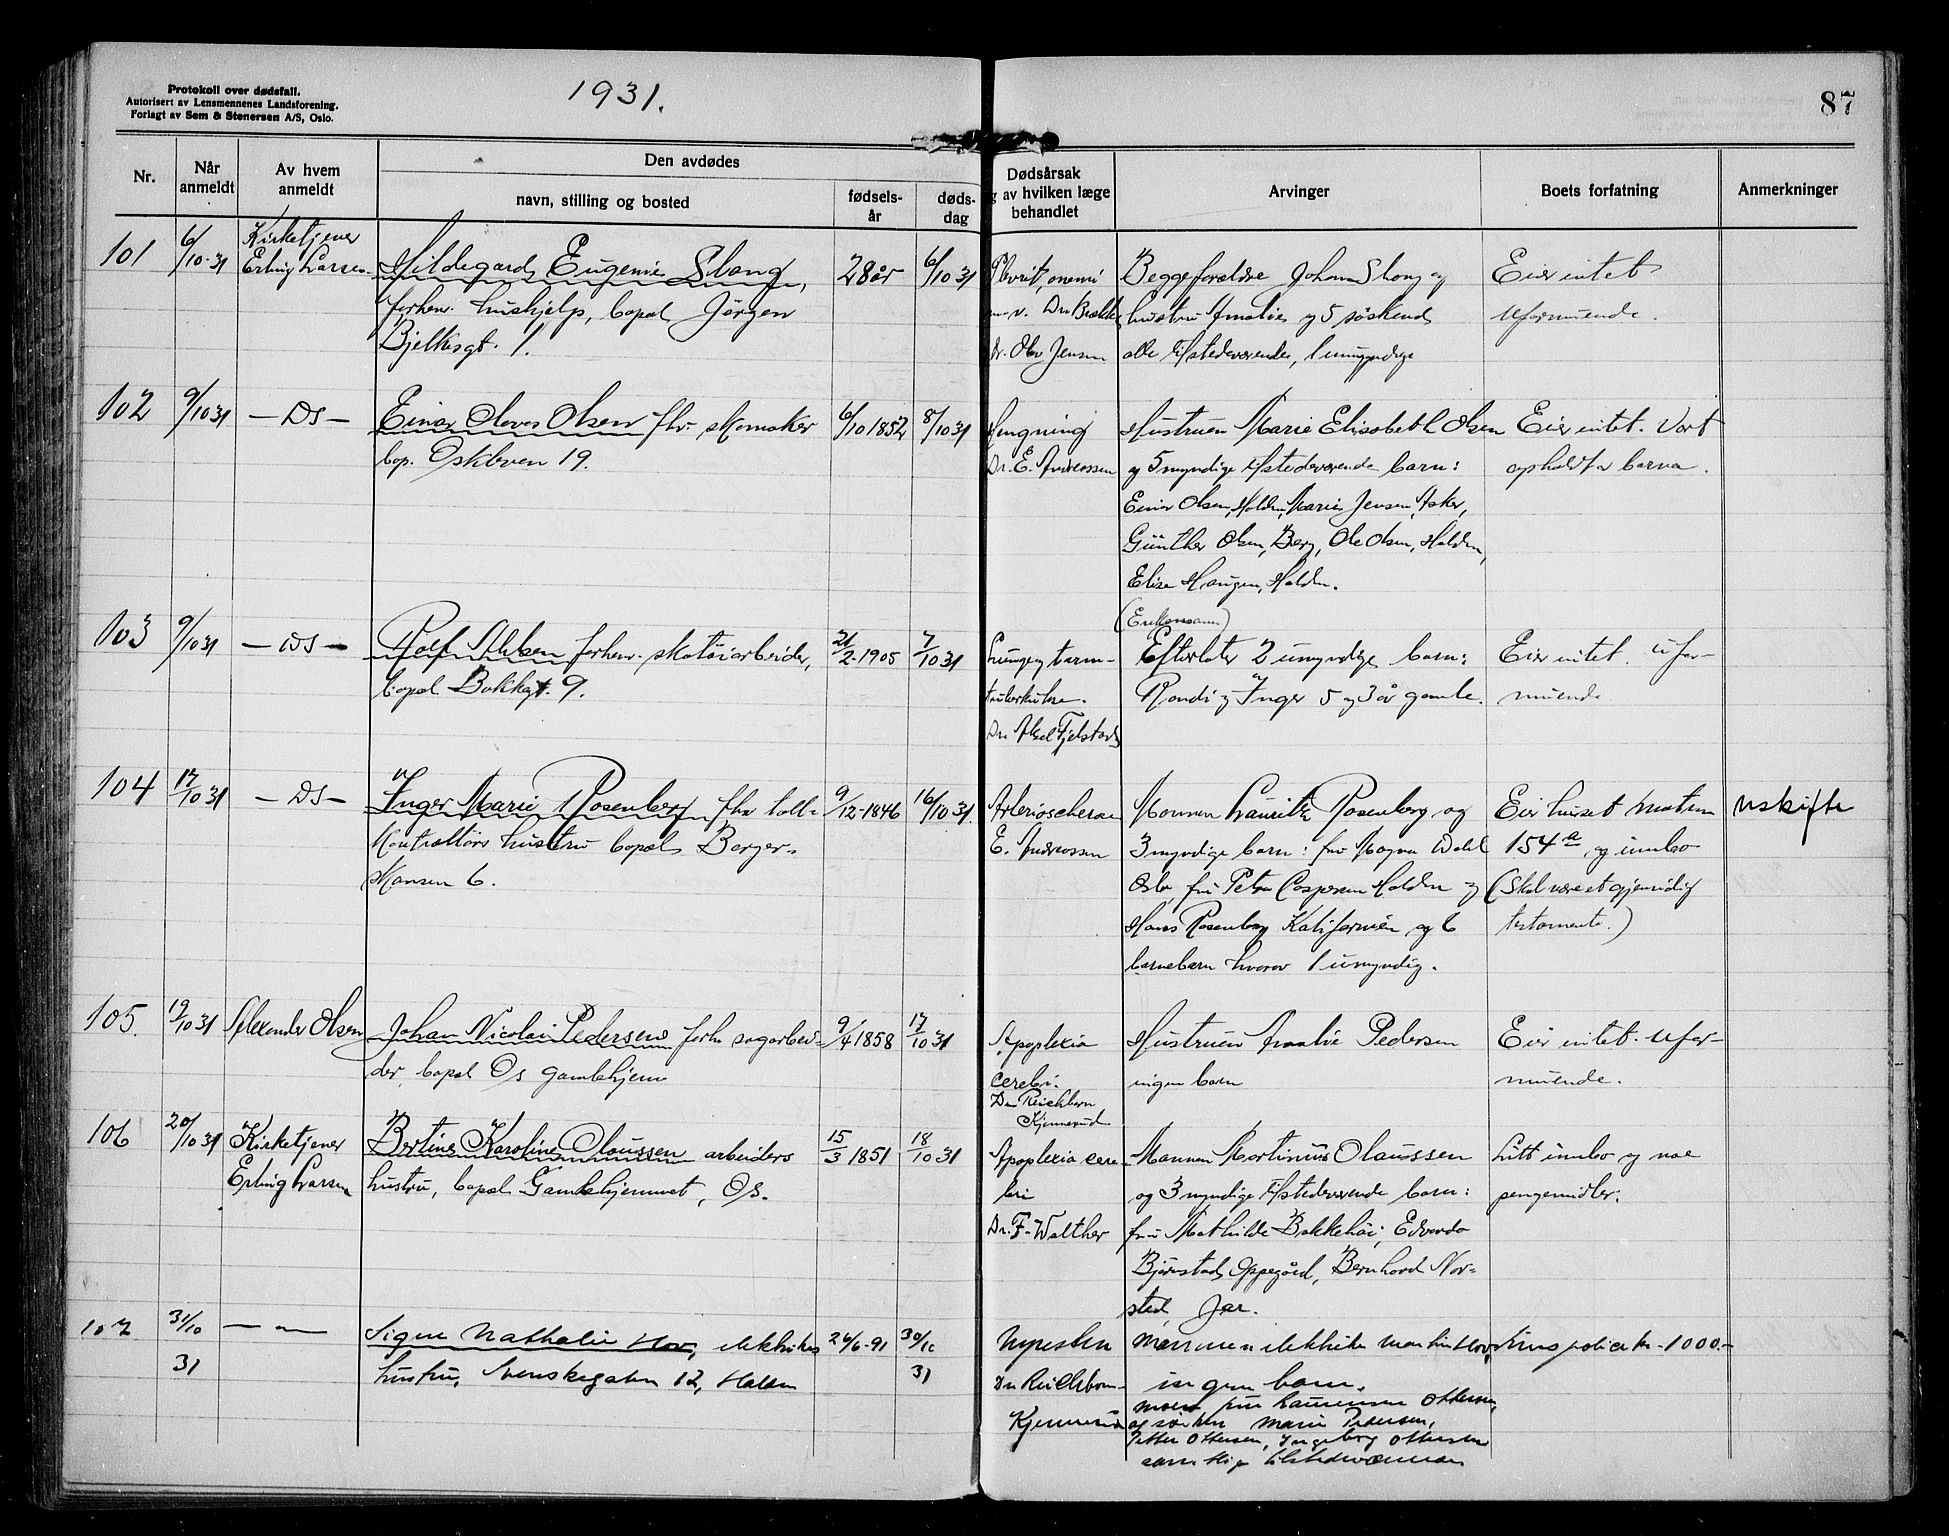 Protokoll over dødsfall.
Autorisert av Lensmennenes Landsforening.
Forlagt av Sem & Stenersen A/S, Oslo.
1931.
87
Nr.
Når anmeldt
Av hvem anmeldt
Den avdødes
navn, stilling og bosted
fødsels-år
døds-dag
Dødsårsak
g av hvilken læge
behandlet
Arvinger
Boets forfatning
Anmerkninger
101
6/10-31
Kirketjener
Erling Larsen
Hildegard Eugenie Slang,
forhenv. hushjelp, bopæl Jørgen
Bjelkesgt. 1.
28 år
6/10 31
Dr. Olav Jensen
Begge forældre Johan Slang og
hustru Amalie og 5 søskende
alle tilstedeværende, 1 umyndig
Eier intet
Uformuende.
102
9/10 31
— DS —
Einar Olaves Olsen fhv. skomaker
bop. Oskleven 19.
6/10 1852
8/10 31
Hengning
Dr. E. Andreassen
Hustruen Marie Elisabeth Olsen
og 5 myndige tilstedeværende barn:
Einar Olsen, Halden, Marie Jensen, Asker,
Günther Olsen, Berg, Ole Olsen, Halden,
Elise Haugen, Halden.
Eier intet. Vært
ophold for barna.
103
9/10 31
— DS —
Rolf Nilsen forhenv. skotøiarbeider,
bopæl Bakkegt. 9.
21/2-1905
7/10 31
Lunge og tarm-
tuberkulose.
Dr. Aksel Fjelstad
(Enkemann)
Efterlater 2 umyndige barn:
Randi og Inger 5 og 3 år gamle.
Eier intet. Ufor-
muende
104
17/10 31
— DS —
Inger Marie Rosenberg fhv. toll-
kontrollørs hustru bopæl Borger-
skansen 6.
9/12-1846
16/10 31.
Arteriosclerose
E. Andreassen
Mannen Lauritz Rosenberg og
3 myndige barn: fru Magna Dahl
Oslo, fru Petra Caspersen Halden og
Hans Rosenberg Kalifornien og 6
barnebarn hvorav 1 umyndig.
Eier huset matrn
154 a og innbo
(Skal være et gjensidig
testamente.)
Uskifte
105.
19/10 31
Alexander Olsen
Johan Nicolai Pedersen forhv. sagarbei-
der, bopæl Os gamlehjem
9/4 1858
17/10 31
Apoplexia
cerebri.
Dr. Reichborn
Kjennerud
Hustruen Amalie Pedersen
ingen barn
Eier intet. Ufor-
muende.
106
20/10 31
Kirketjener
Erling Larsen
Bertine Karoline Olaussen arbeiders
hustru, bopæl Gamlehjemmet, Os.
15/3 1851
18/10 31
Apoplexia cere-
bri
Dr. F. Walther
Mannen Martinius Olaussen
og 3 myndige tilstedeværende barn:
fru Mathilde Bakkehøi, Edvarda
Bjørnstad, Oppegård, Bernhard Nor-
sted, Jar.
Litt innbo og noe
pengemidler.
107
31/10 31
— " —
Signe Nathalie Hov, elektrikers
hustru, Svenskegaten 12, Halden
26/6-91
30/10 31
Dr. Reichborn-
Kjennerud
Mannen elektriker Martin Hov,
ingen barn.
mor fru Laurense Ottersen,
og søsken Marie Pedersen,
Petter Ottersen, Ingeborg Ottersen
samtlige tilstedeværende
Livspolice kr. 1000.-